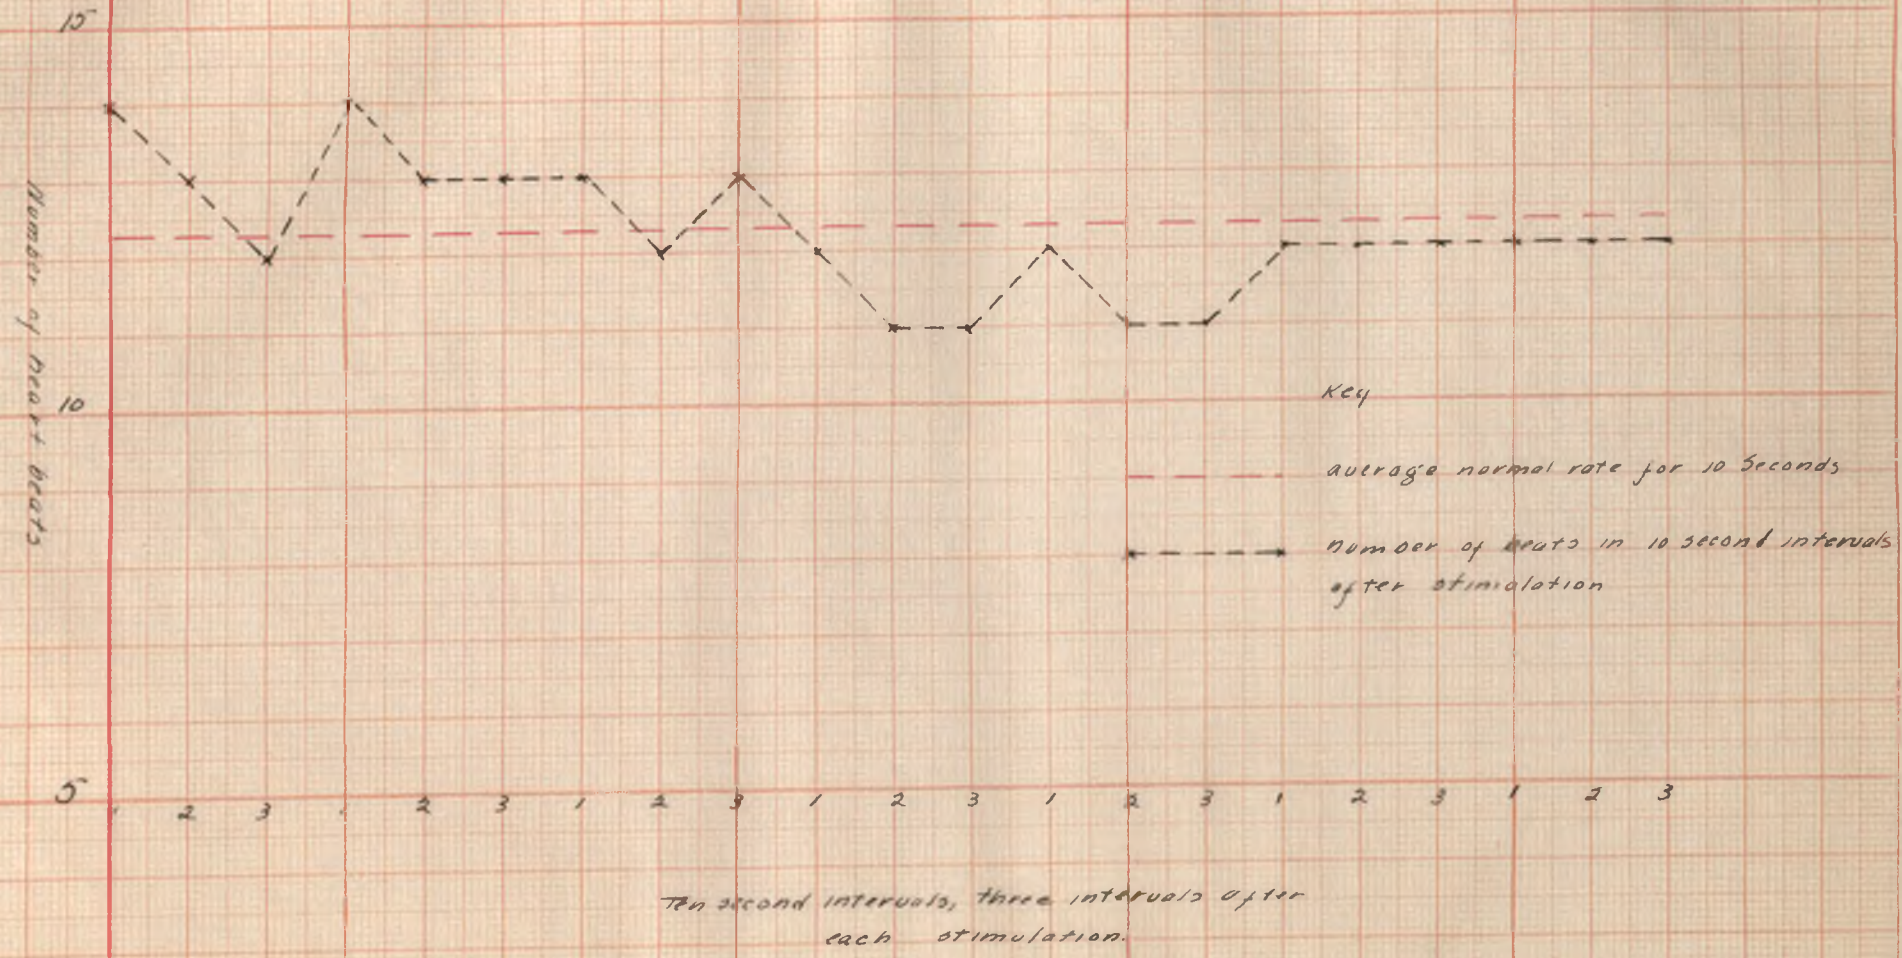 15
Number of heart beats
10
Key
average normal rate for 10 Seconds
number of beats in 10 second intervals
after stimulation
5
1 2 3 1 2 3 1 2 3 1 2 3 1 2 3 1 2 3 1 2 3
Ten second intervals, three intervals after
each stimulation.